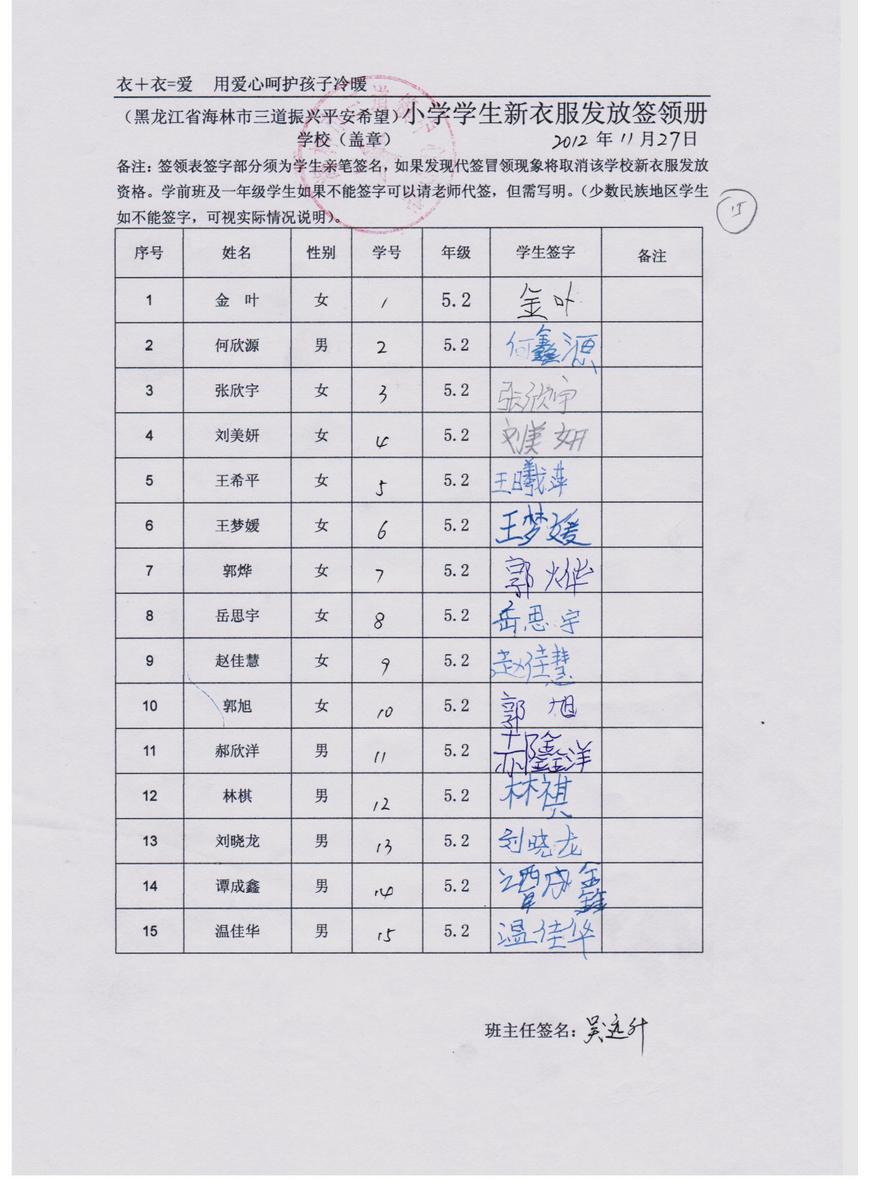 衣+衣=爱 用爱心呵护孩子冷暖
（黑龙江省海林市三道振兴平安希望）小学学生新衣服发放签领册
学校（盖章） 2012 年 11 月 27 日
备注：签领表签字部分须为学生亲笔签名，如果发现代签冒领现象将取消该学校新衣服发放
资格。学前班及一年级学生如果不能签字可以请老师代签，但需写明。（少数民族地区学生
如不能签字，可视实际情况说明）。
15
序号 姓名 性别 学号 年级 学生签字 备注
1 金 叶 女 1 5.2 金叶
2 何欣源 男 2 5.2 何鑫源
3 张欣宇 女 3 5.2 张欣宇
4 刘美妍 女 4 5.2 刘美妍
5 王希平 女 5 5.2 王曦萍
6 王梦媛 女 6 5.2 王梦媛
7 郭烨 女 7 5.2 郭烨
8 岳思宇 女 8 5.2 岳思宇
9 赵佳慧 女 9 5.2 赵佳慧
10 郭旭 女 10 5.2 郭旭
11 郝欣洋 男 11 5.2 郝鑫洋
12 林棋 男 12 5.2 林祺
13 刘晓龙 男 13 5.2 刘晓龙
14 谭成鑫 男 14 5.2 谭成鑫
15 温佳华 男 15 5.2 温佳华
班主任签名：吴远升